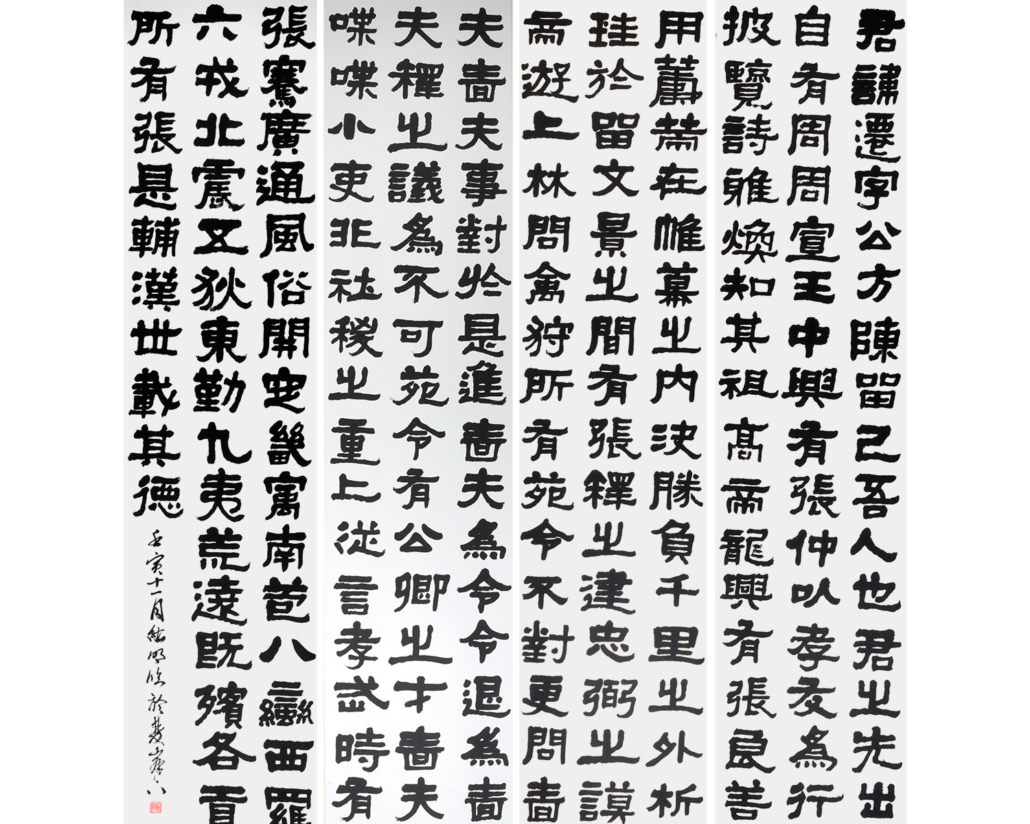 君諱遷字公方陳留己吾人也君之先出
自有周周宣王中興有張仲以孝友為行
披覽詩雅煥知其祖高帝龍興有張良善
用籌策在帷幕之内決勝負千里之外析
珪於留文景之間有張釋之建忠弼之謨
帝遊上林問禽狩所有苑令不對更問嗇
夫嗇夫事對於是進嗇夫為令令退為嗇
夫釋之議為不可苑令有公卿之才嗇夫
喋喋小吏非社稷之重上從言孝武時有
張騫廣通風俗開定畿寓南苞八蠻西羈
六戎北震五狄東勤九夷荒遠既殯各貢
所有張是輔漢世載其德
壬寅十一月明臨於